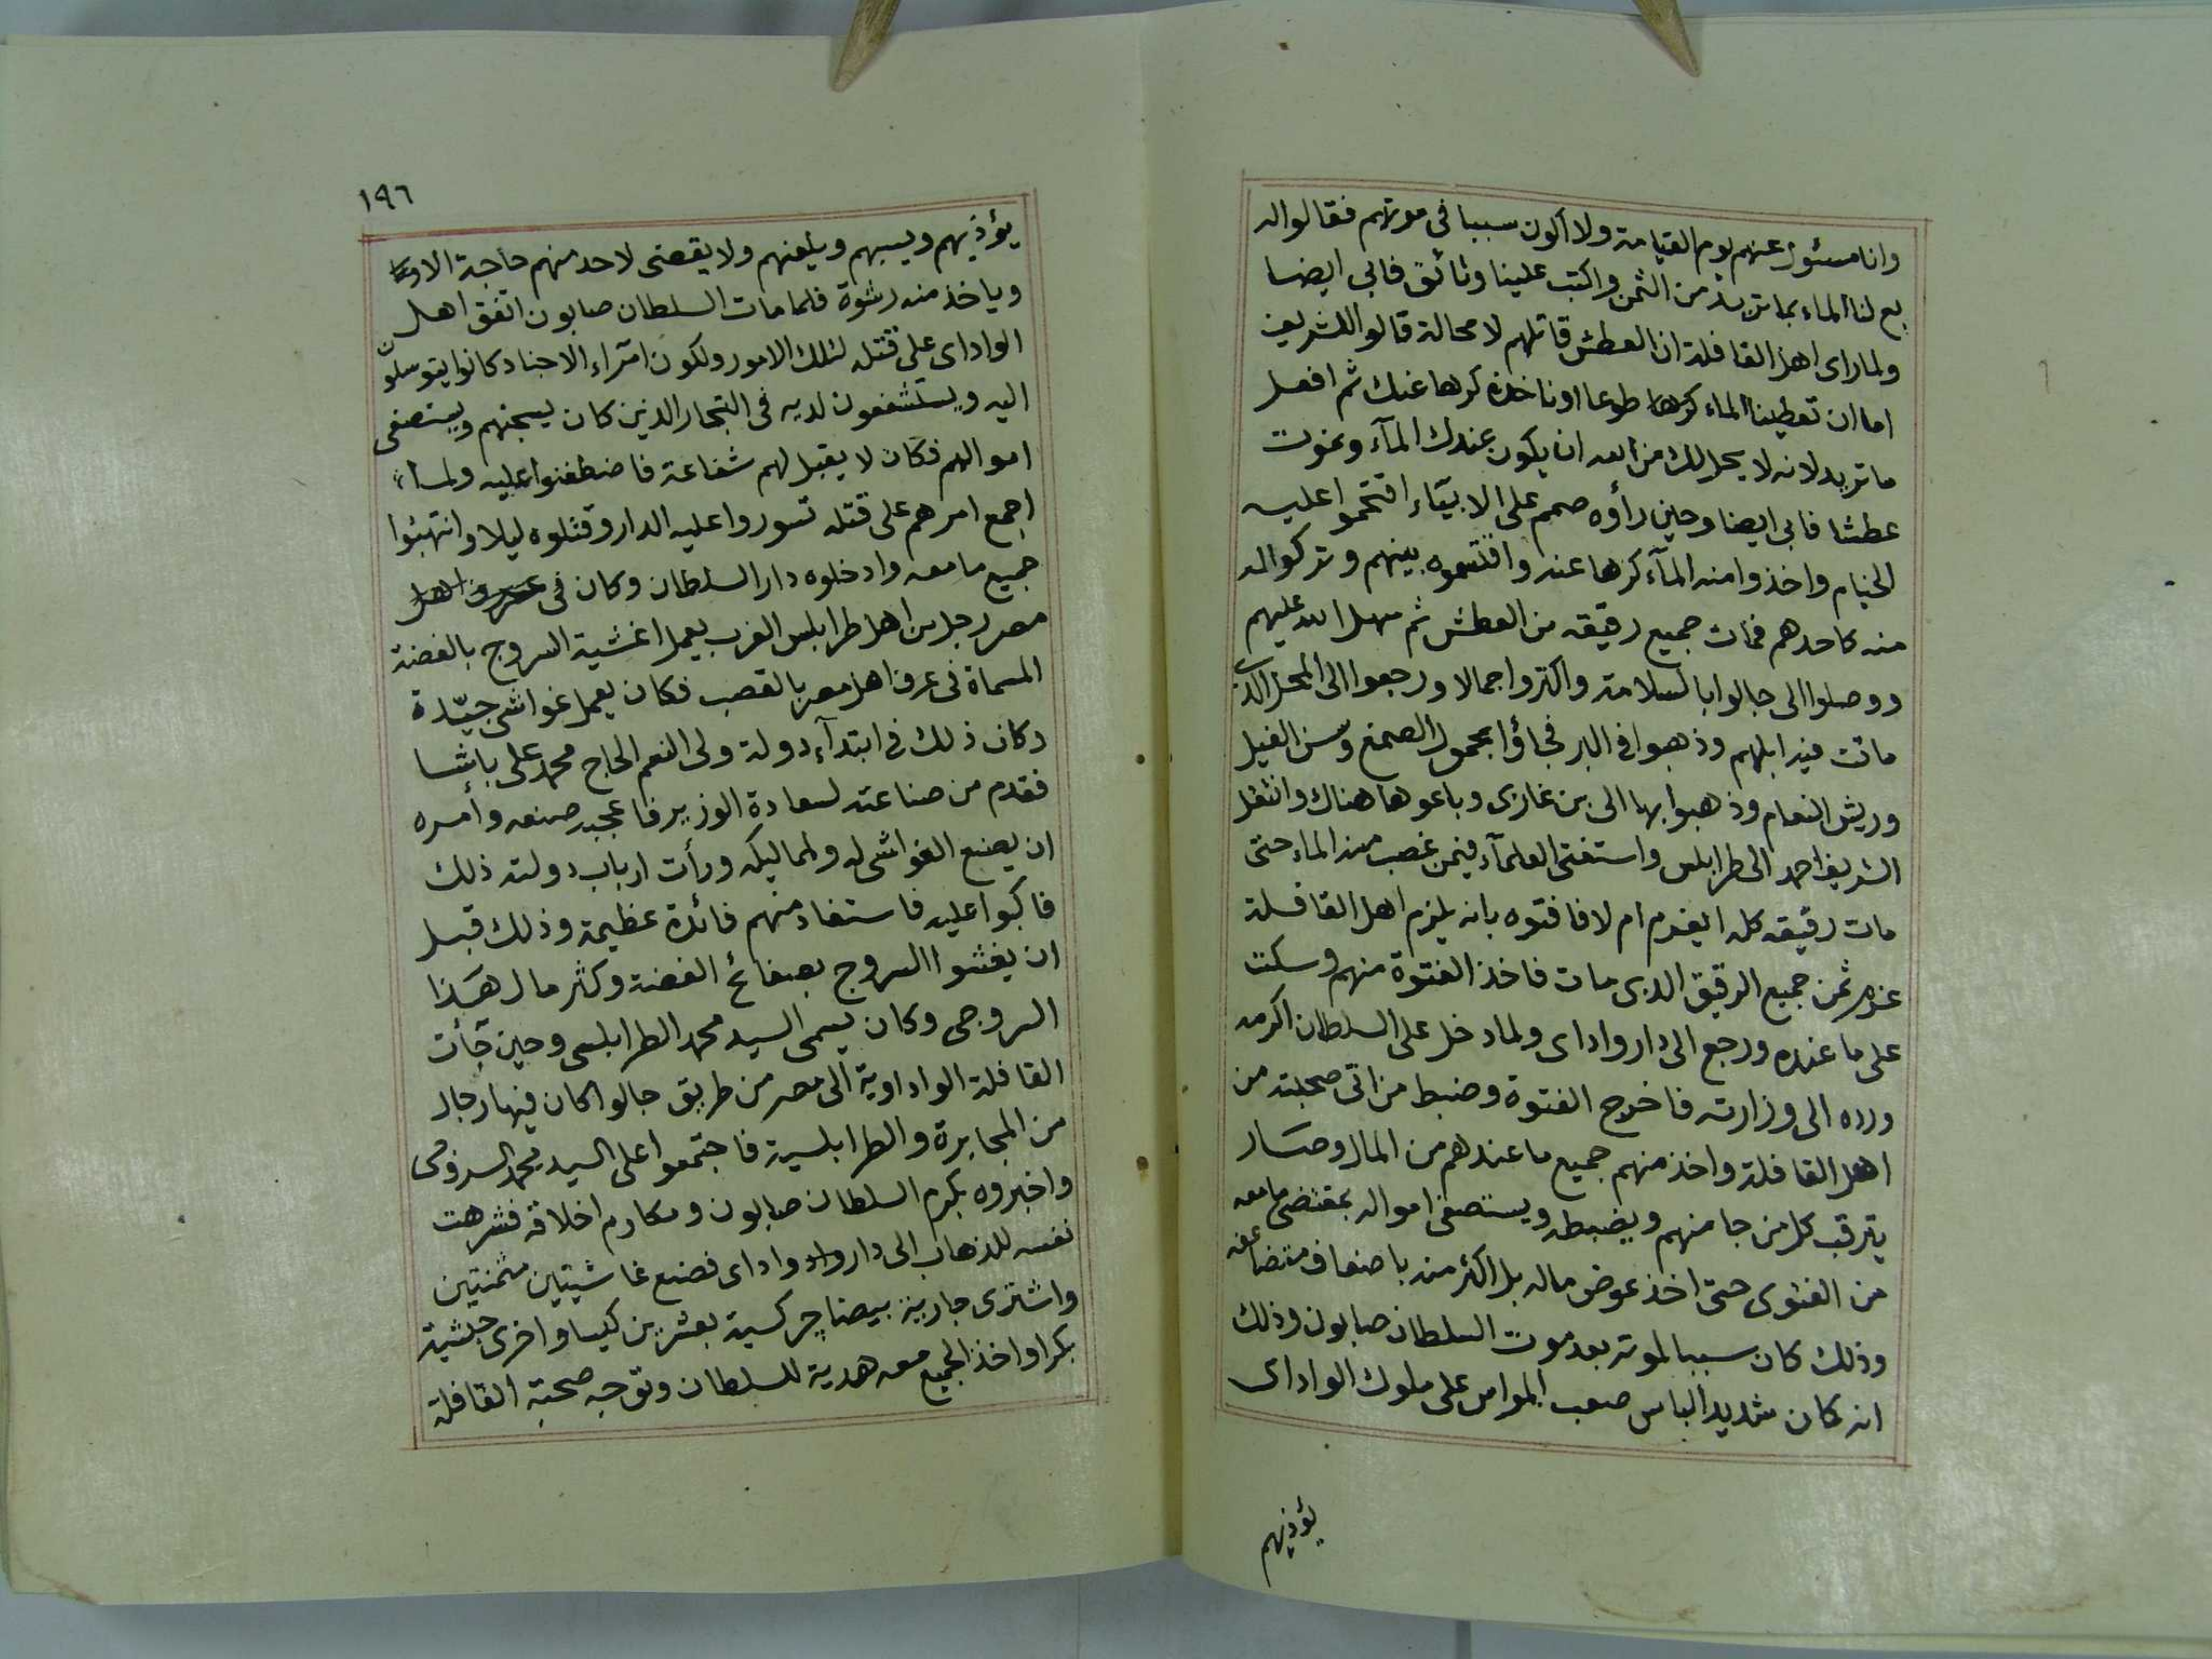 وانا مسئول عنهم يوم القيامة ولا اكون سببا فى موتهم فقالوا له
بع لنا الماء بما تريد من الثمن واكتب علينا وثائق فابى ايضا
ولما راى اهل القافلة ان العطش قاتلهم لا محالة قالوا للشريف
اما ان تعطينا الماء كرها طوعا او ناخذه كرها عنك ثم افعل
ما تريد لانه لا يحل لك من الله ان يكون عندك المآء ونموت
عطشا فابى ايضا وحين رأوه صمم على الابيآء اقتحموا عليه
الخيام واخذوا منه المآء كرها عنه واقتسموه بينهم وتركوا له
منه كاحدهم فمات جميع رقيقه من العطش ثم سهل الله عليهم
ووصلوا الى جالوا بالسلامة واكتروا جمالا ورجعوا الى المحل الذى
ماتت فيه ابلهم وذهبوا فى البر فجاؤا بحمول الصمغ وسن الفيل
وريش النعام وذهبوا بها الى بن غازى وباعوها هناك وانتقل
الشريف احمد الى طرابلس واستفتى العلمآء فيمن غصب منه الماء حتى
مات رقيقه كله ايغرم ام لا فافتوه بانه يلزم اهل القافلة
غرم ثمن جميع الرقيق الذى مات فاخذ الفتوة منهم وسكت
على ما عنده ورجع الى دار واداى ولما دخل على السلطان اكرمه
ورده الى وزارته فاخرج الفتوة وضبط من اتى صحبته من
اهل القافلة واخذ منهم جميع ما عندهم من المال وصار
يترقب كل من جا منهم ويضبطه ويستصفى امواله بمقتضى ما معه
من الفتوى حتى اخذ عوض ماله بل اكثر منه باضعاف متضاعفه
وذلك كان سببا لموته بعد موت السلطان صابون وذلك
انه كان شديد الباس صعب المراس على ملوك الواداى
يؤذيهم
١٩٦
يؤذيهم ويسبهم ويلعنهم ولا يقضى لاحد منهم حاجة الا
وياخذ منه رشوة فلما مات السلطان صابون اتفق اهل
الواداى على قتله لتلك الامور ولكون امراء الاجناد كانوا يتوسلون
اليه ويستشفعون لديه فى التجار الذين كان يسجنهم ويستصفى
اموالهم فكان لا يقبل لهم شفاعة فاضطغنوا عليه ولما
اجمع امرهم على قتله تسوروا عليه الدار وقتلوه ليلا وانتهبوا
جميع ما معه وادخلوه دار السلطان وكان فى اهل
مصر رجل من اهل طرابلس الغرب يعمل اغشية السروج بالفضة
المسماة فى عرف اهل مصر بالقصب فكان يعمل غواشى جيّدة
وكان ذلك فى ابتدآء دولة ولى النعم الحاج محمد على باشا
فقدم من صناعته لسعادة الوزير فاعجبه صنعه وأمره
ان يصنع الغواشى له ولمماليكه ورأت ارباب دولته ذلك
فاكبوا عليه فاستفاد منهم فائدة عظيمة وذلك قبل
ان يغشوا السروج بصفائح الفضة وكثر مال هذا
السروجى وكان يسمى السيد محمد الطرابلسى وحين جآت
القافلة الواداوية الى مصر من طريق جالوا كان فيها رجال
من المجابرة والطرابلسية فاجتمعوا على السيد محمد السروجى
واخبروه بكرم السلطان صابون ومكارم اخلاقه فشرهت
نفسه للذهاب الى دار واد واداى فصنع غاشيتين مثمنتين
واشترى جارية بيضا چركسية بعشرين كيسا واخرى حبشية
بكرا واخذ الجميع معه هدية للسلطان وتوجه صحبة القافلة